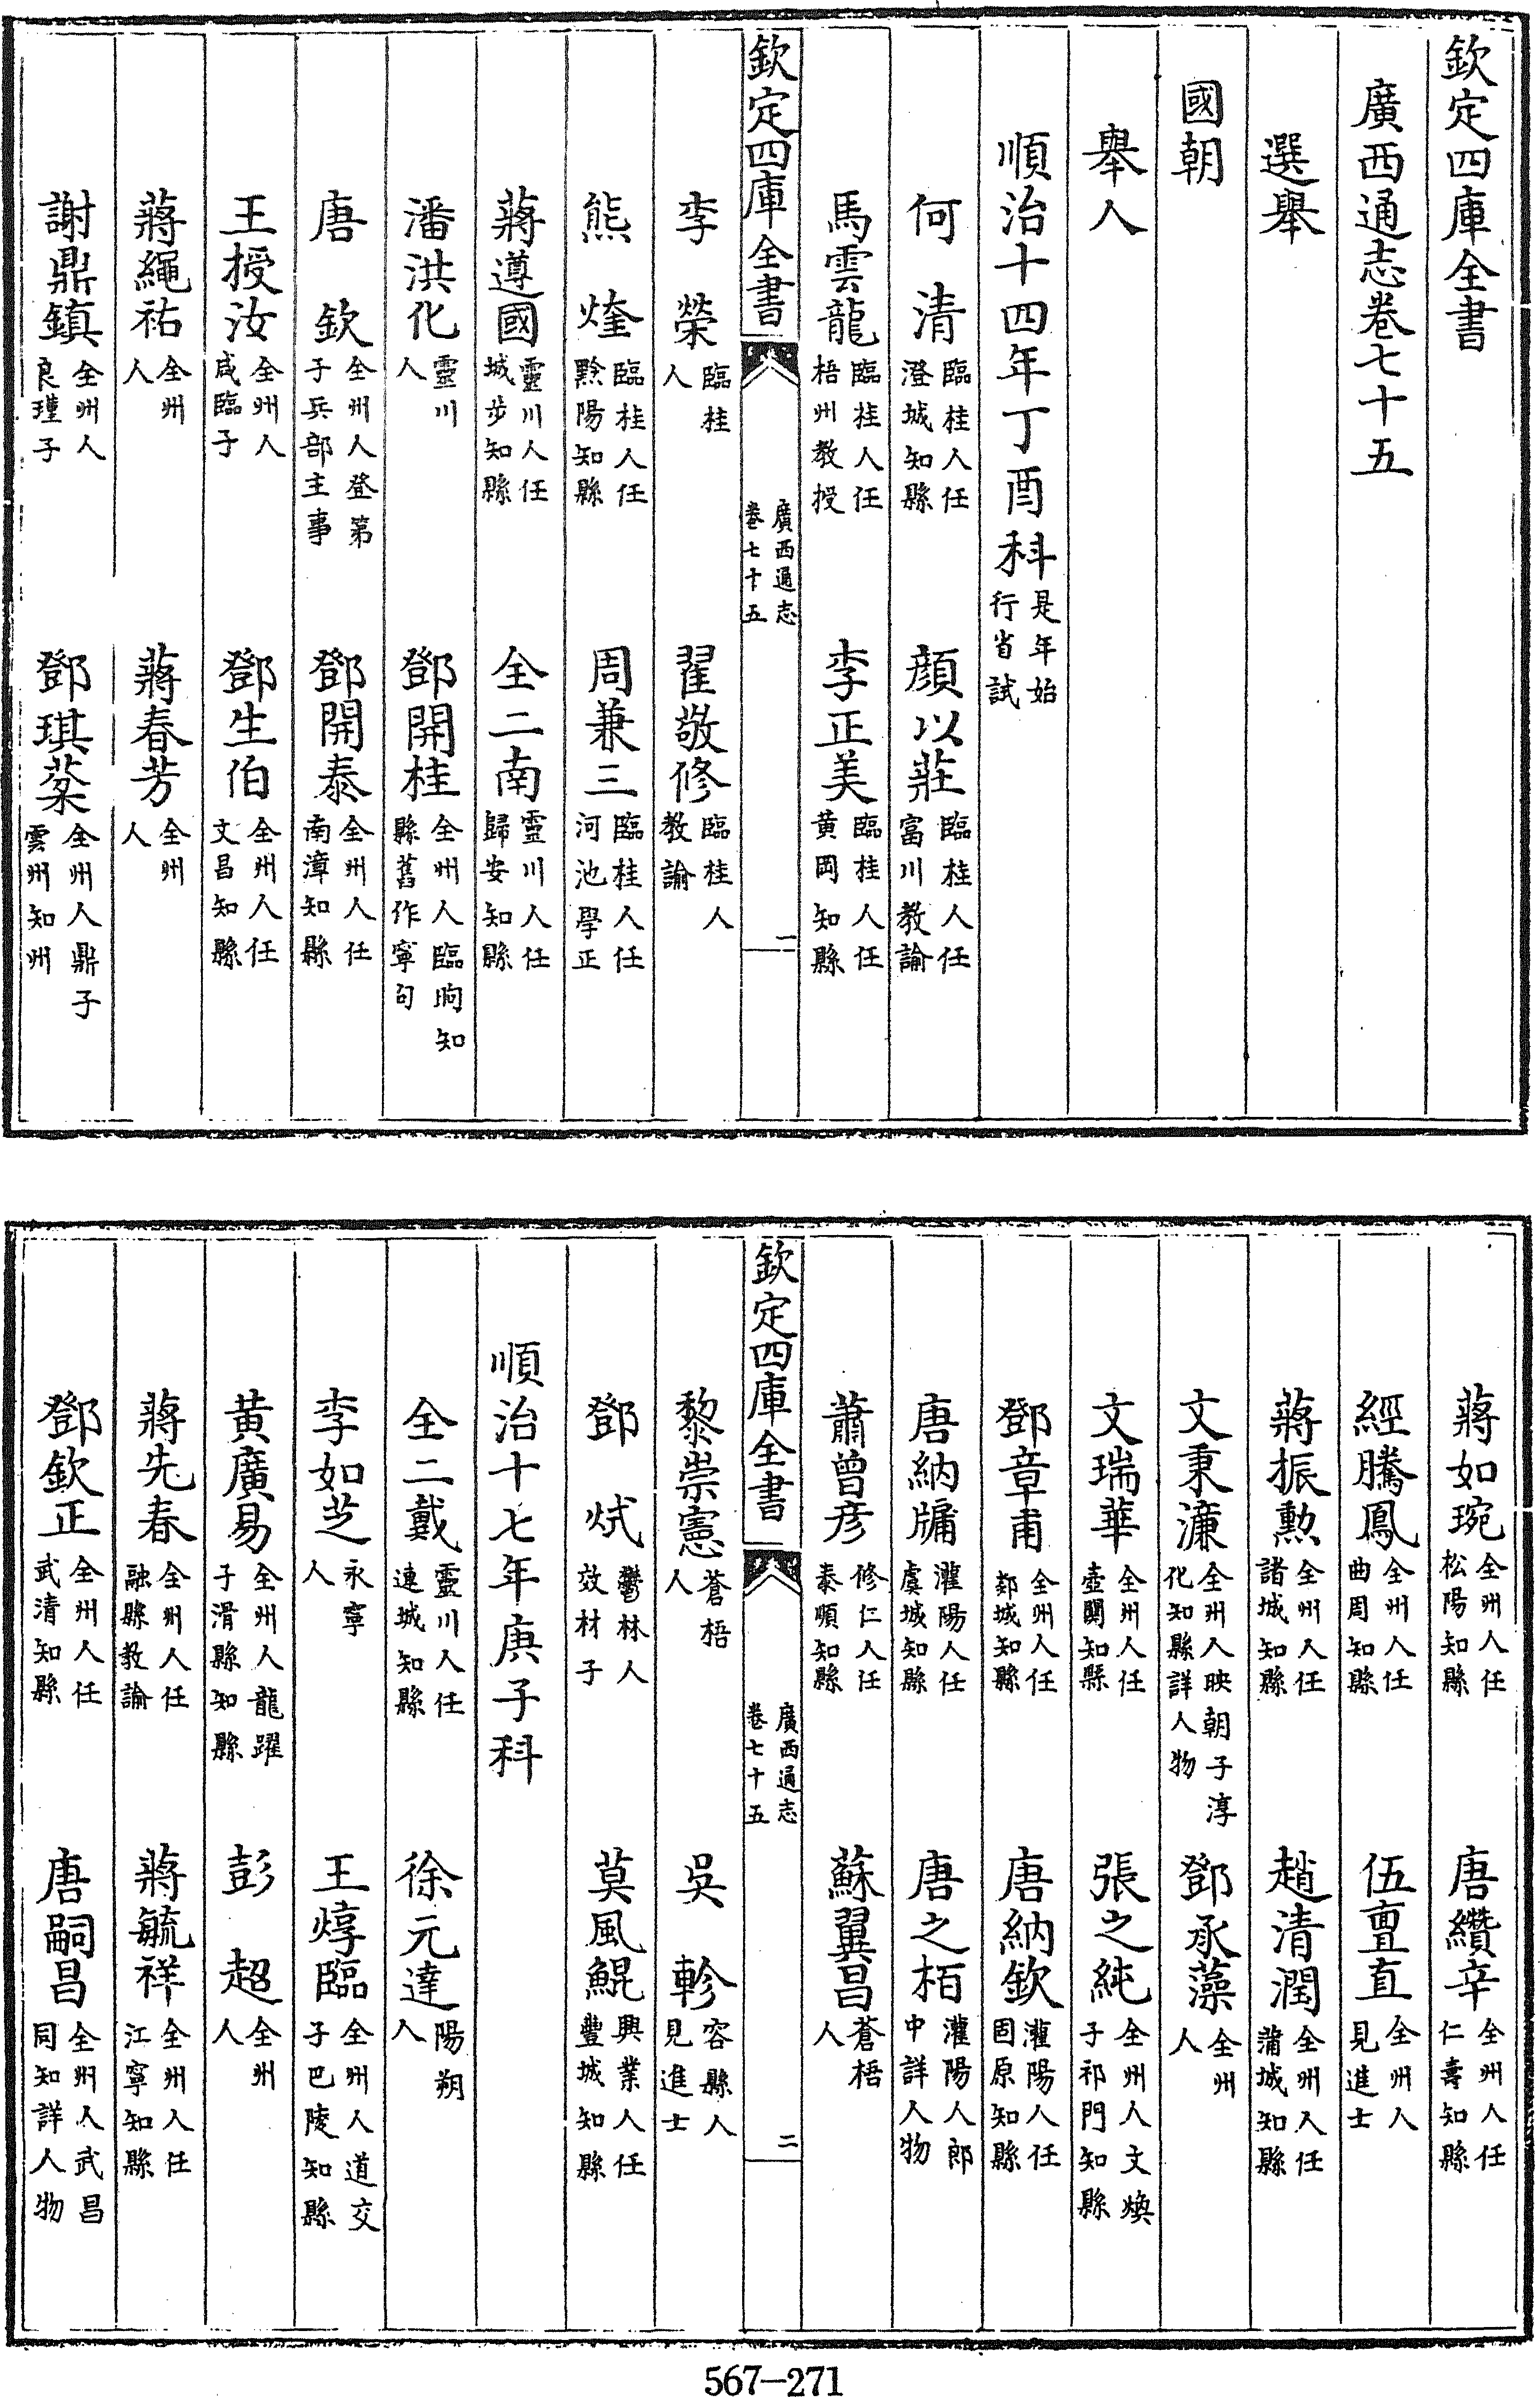 欽定四庫全書
廣西通志卷七十五
選舉
國朝
舉人
順治十四年丁酉科是年始行省試
何清臨桂人任澄城知縣 顏以莊臨桂人任富川教諭
馬雲龍臨桂人任梧州教授 李正美臨桂人任黃岡知縣
欽定四庫全書 廣西通志卷七十五 一
李榮臨桂人 翟敬修臨桂人教諭
熊煃臨桂人任黔陽知縣 周兼三臨桂人任河池學正
蔣遵國靈川人任城步知縣 全二南靈川人任歸安知縣
潘洪化靈川人 鄧開桂全州人臨昫知縣舊作寧句
唐欽全州人登第子兵部主事 鄧開泰全州人任南漳知縣
王授汝全州人咸臨子 鄧生伯全州人任文昌知縣
蔣繩祐全州人 蔣春芳全州人
謝鼎鎮全州人良瑾子 鄧琪棻全州人鼎子雲州知州
蔣如琬全州人任松陽知縣 唐纘辛全州人任仁壽知縣
經騰鳳全州人任曲周知縣 伍亶直全州人見進士
蔣振勲全州人任諸城知縣 趙清潤全州人任蒲城知縣
文秉濂全州人映朝子淳化知縣詳人物 鄧承藻全州人
文瑞華全州人任壺關知縣 張之純全州人文煥子祁門知縣
鄧章甫全州人任郯城知縣 唐納欽灌陽人任固原知縣
唐納牗灌陽人任虞城知縣 唐之栢灌陽人郎中詳人物
蕭曾彦修仁人任泰順知縣 蘇翼昌蒼梧人
欽定四庫全書 廣西通志卷七十五 二
黎崇憲蒼梧人 吳軫容縣人見進士
鄧烒鬱林人效材子 莫風鯤興業人任豐城知縣
順治十七年庚子科
全二戴靈川人任連城知縣 徐元達陽朔人
李如芝永寧人 王焞臨全州人道交子巴陵知縣
黃廣易全州人龍躍子滑縣知縣 彭超全州人
蔣先春全州人任融縣教諭 蔣毓祥全州人任江寧知縣
鄧欽正全州人任武清知縣 唐嗣昌全州人武昌同知詳人物
567—271